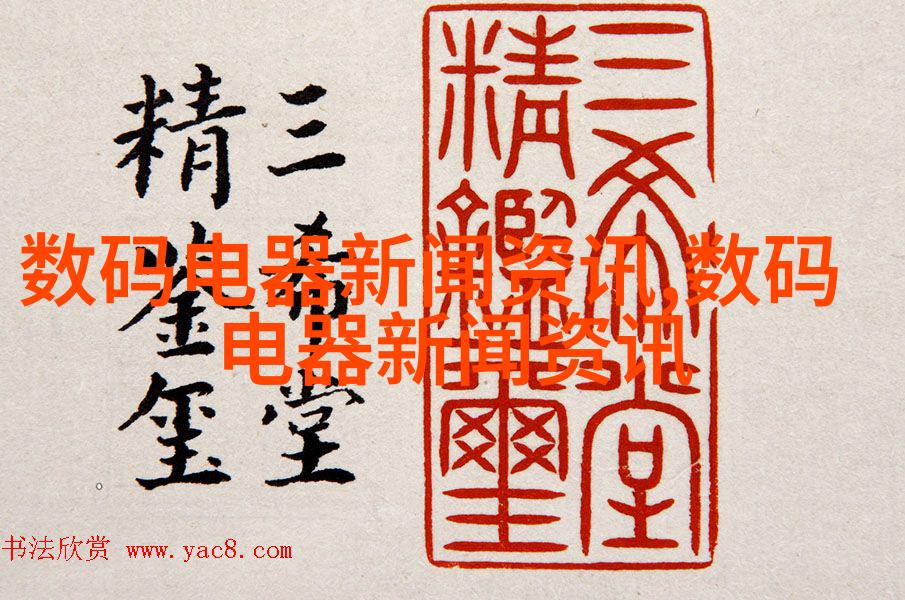 三希堂
精鉴玺
三希堂
精鑑璽
数码电器新闻资讯,数码
电器新闻资讯
书法欣赏 www.yac8.com